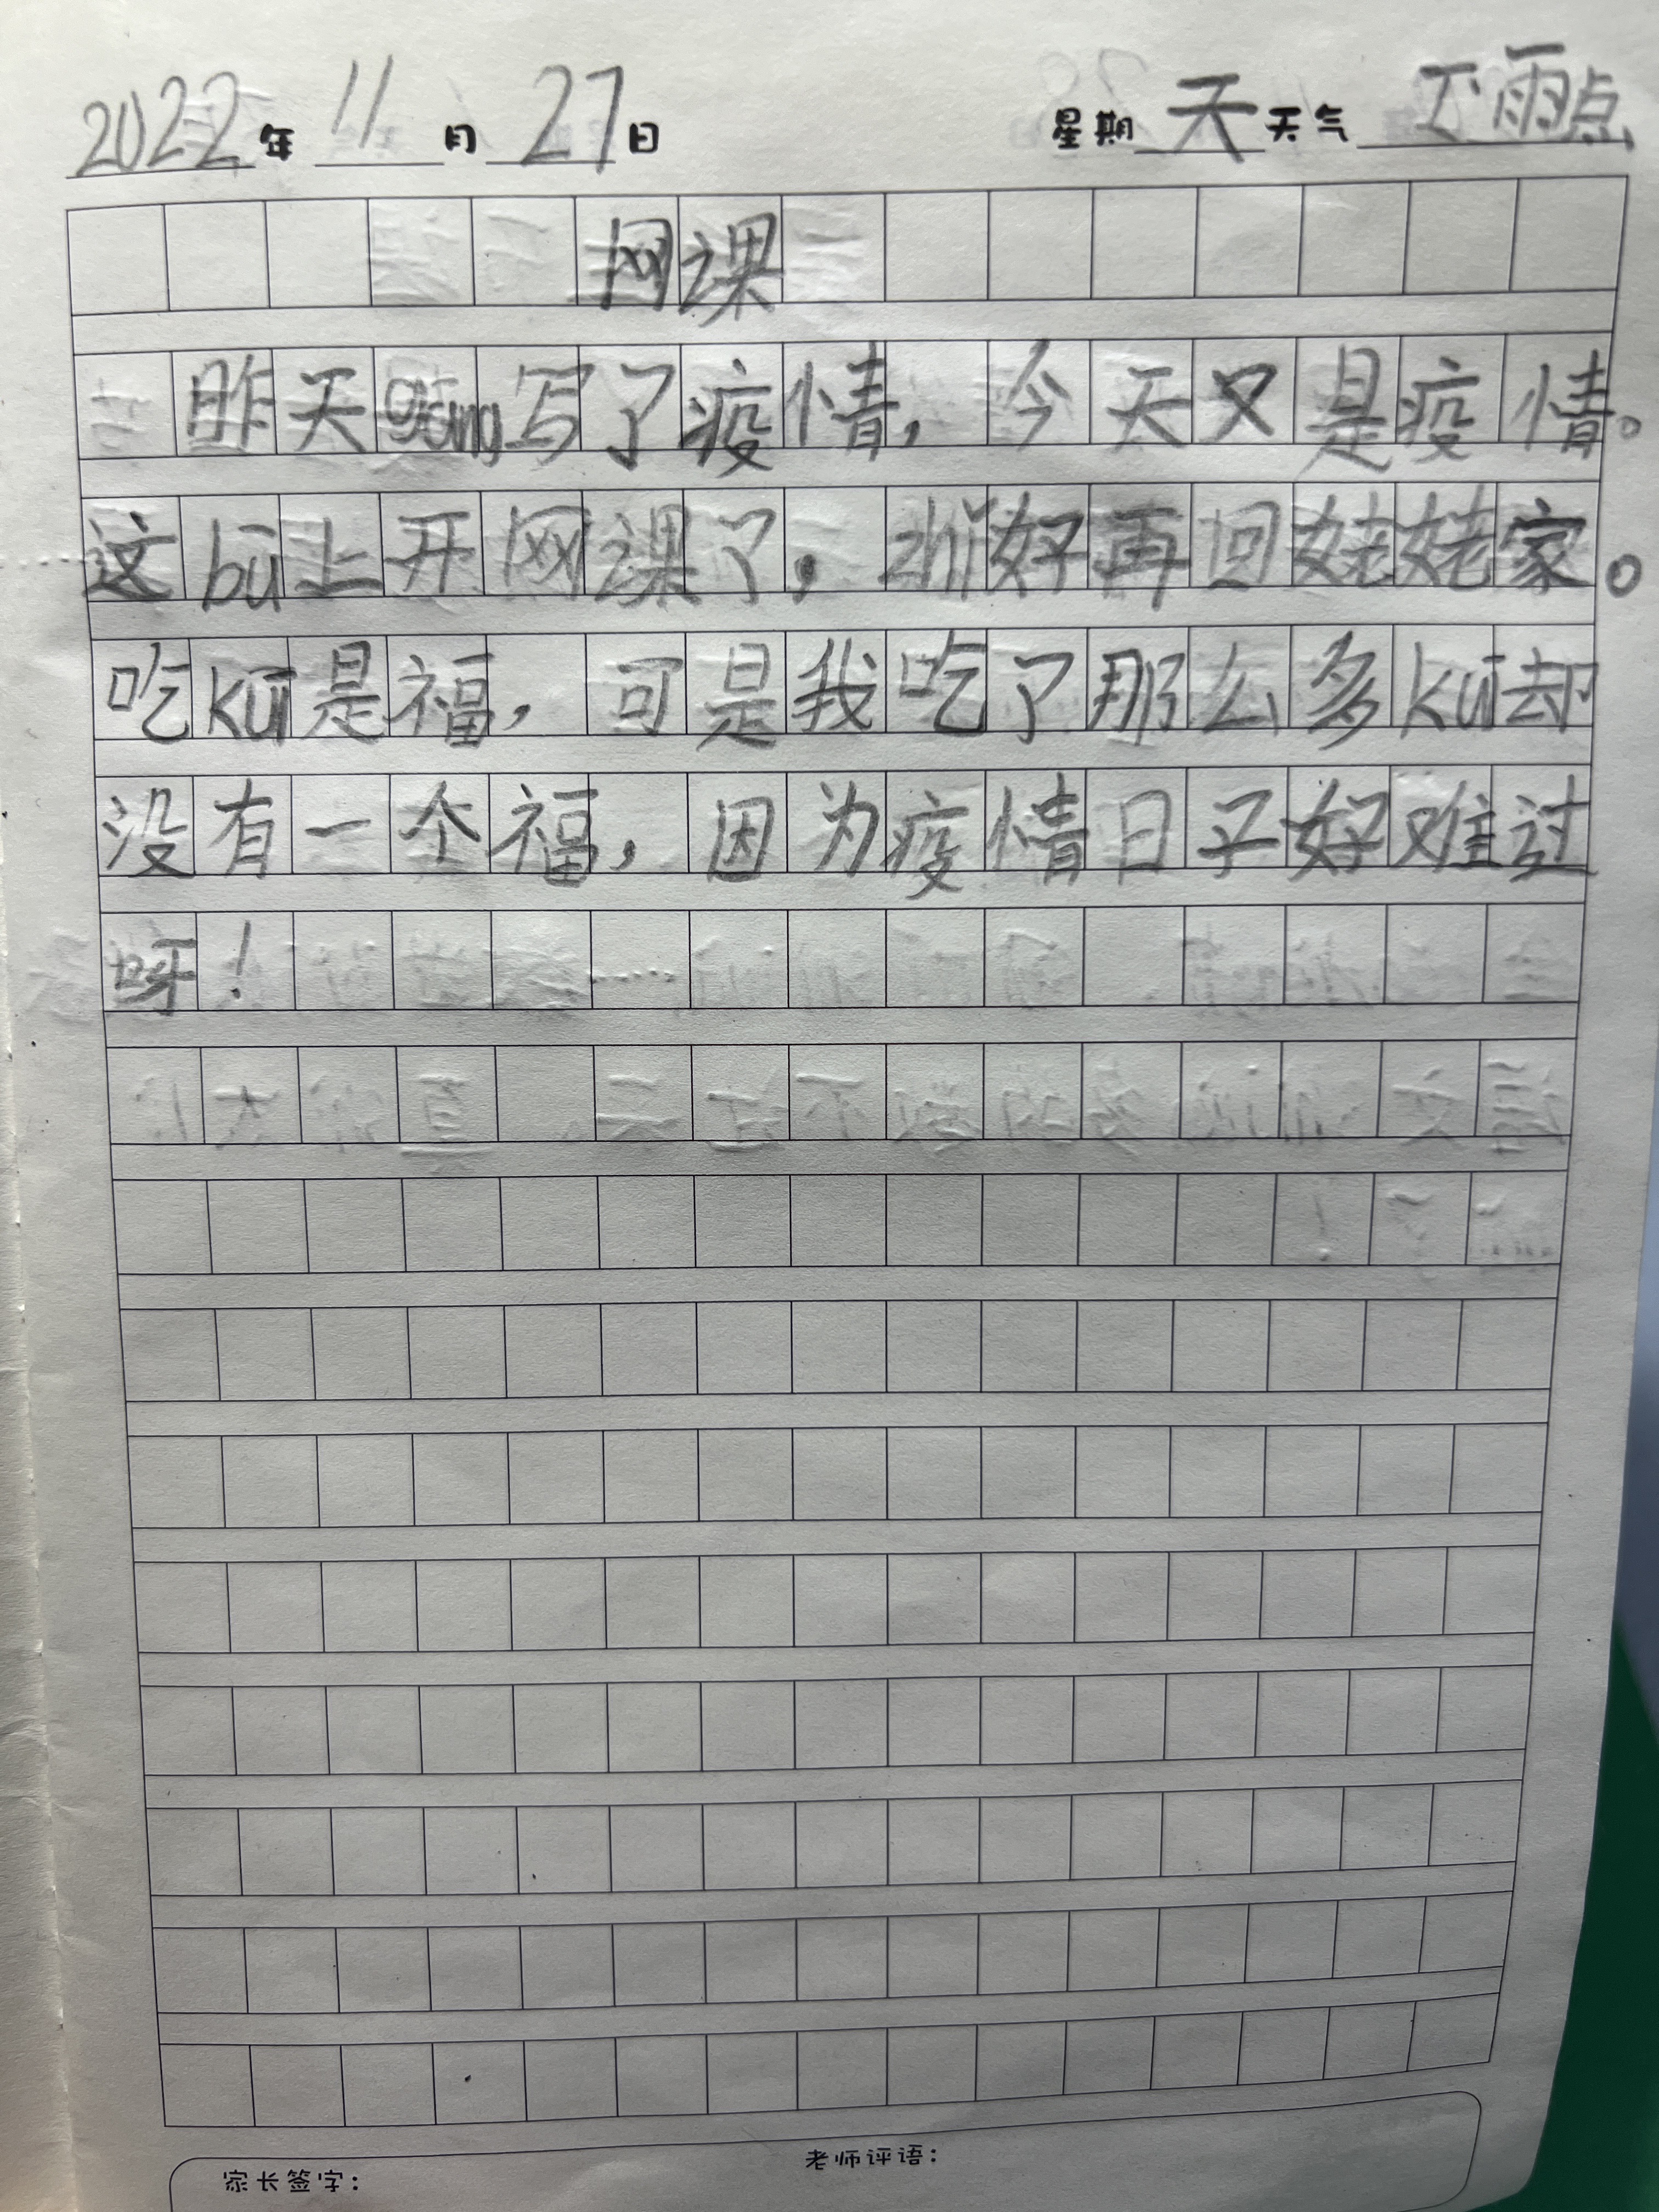 2022年 11月 27日 星期天 天气 下雨点
网课
昨天gāng写了疫情，今天又是疫情。
这bu上开网课了，zhǐ好再回姥姥家。
吃kuī是福，可是我吃了那么多kuī却
没有一个福，因为疫情日子好难过
呀！
家长签字：
老师评语：